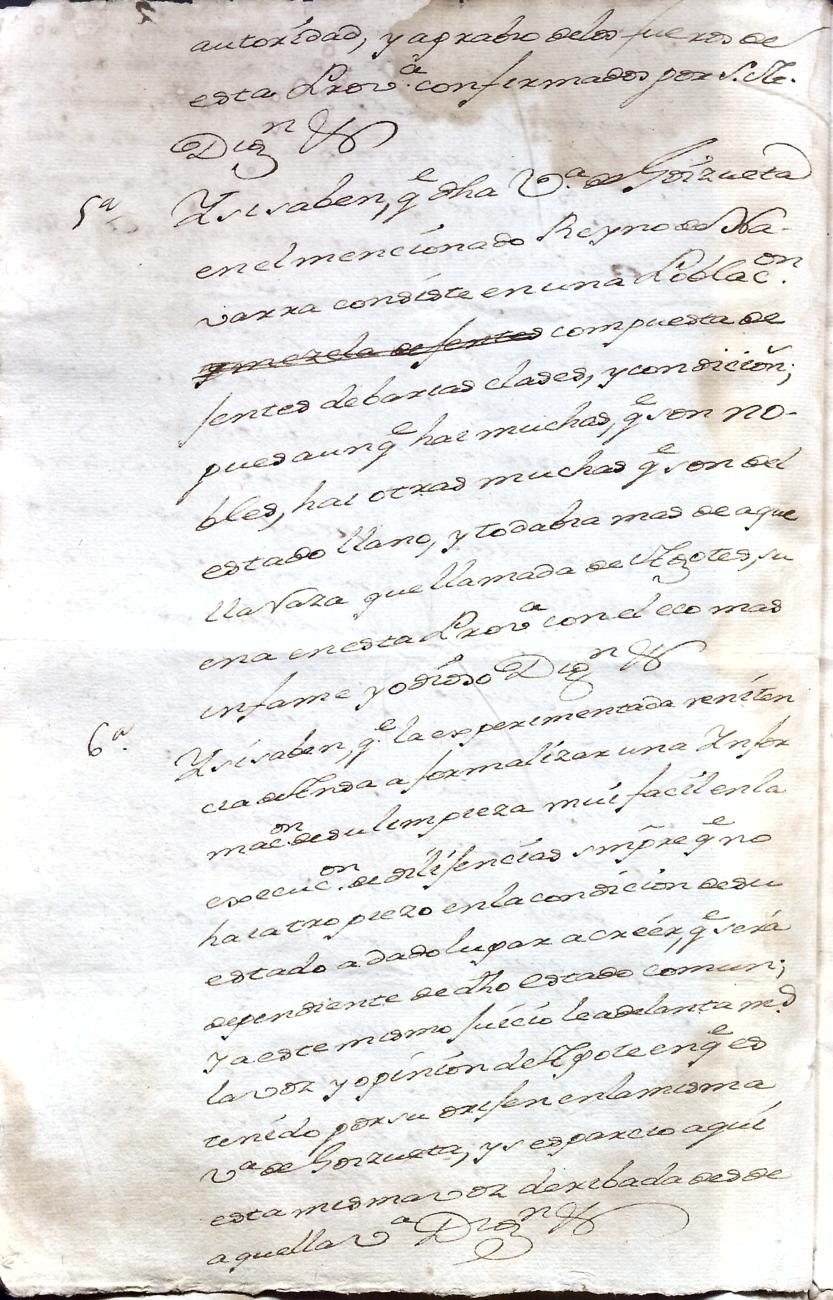 autoridad, y agrabio delos fueros de
esta Prov.ª confirmados por S.M.
Dig.n &
5ª Y si saben, q.e dha V.ª de Goizueta
en el mencionado Reyno de Na-
varra consiste en una Poblac.on
y mezcla de jentes compuesta de
jentes de barias clases, y condición;
pues aunq.e hai muchas, q.e son no-
bles, hai otras muchas q.e son del
estado llano, y todabia mas de aque
lla Raza que llamada de Agotes, su
ena en esta Prov.ª con el eco mas
infame y odioso Dig.n &
6ª Y si saben, q.e la experimentada reniten
cia de a formalizar una Infor
mac.on de su limpieza mui facil en la
execuc.on de dilijencias smpre q.e no
haia tropiezo en la condición de su
estado a dado lugar a creér, q.e será
dependiente de dho estado comun;
y a este mismo juicio le adelanta m.s
la voz y opinión de Agote en q.e es
tenido por su orijen en la misma
V.ª de Goizueta, y se esparcio aquí
esta misma voz deribada desde
aquella V.ª Dig.n &